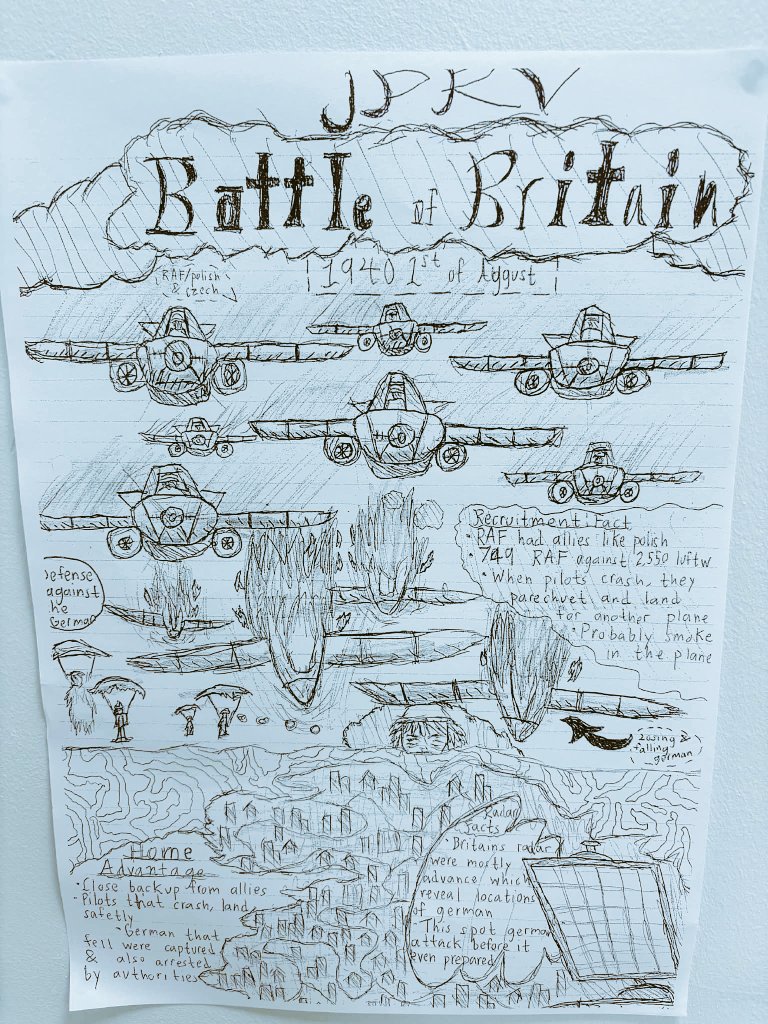 JPRV
Battle of Britain
RAF/polish
& Czech
1940 1st of August
Recruitment Fact
• RAF had allies like polish
• 749 RAF against 2550 luftw
• When pilots crash, they
parechvet and land
for another plane
• Probably smoke
in the plane
defense
against
he
German
Losing &
falling
german
Home
Advantage
• Close backup from allies
• Pilots that crash, land
safetly
• German that
fell were captured
& also arrested
by authorities
Radar
facts
• Britains radar
were mostly
advance which
reveal locations
of german
• This spot german
attack before it
even prepared